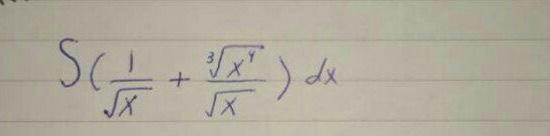 ∫(1/√x + ∛(x⁴)/√x) dx